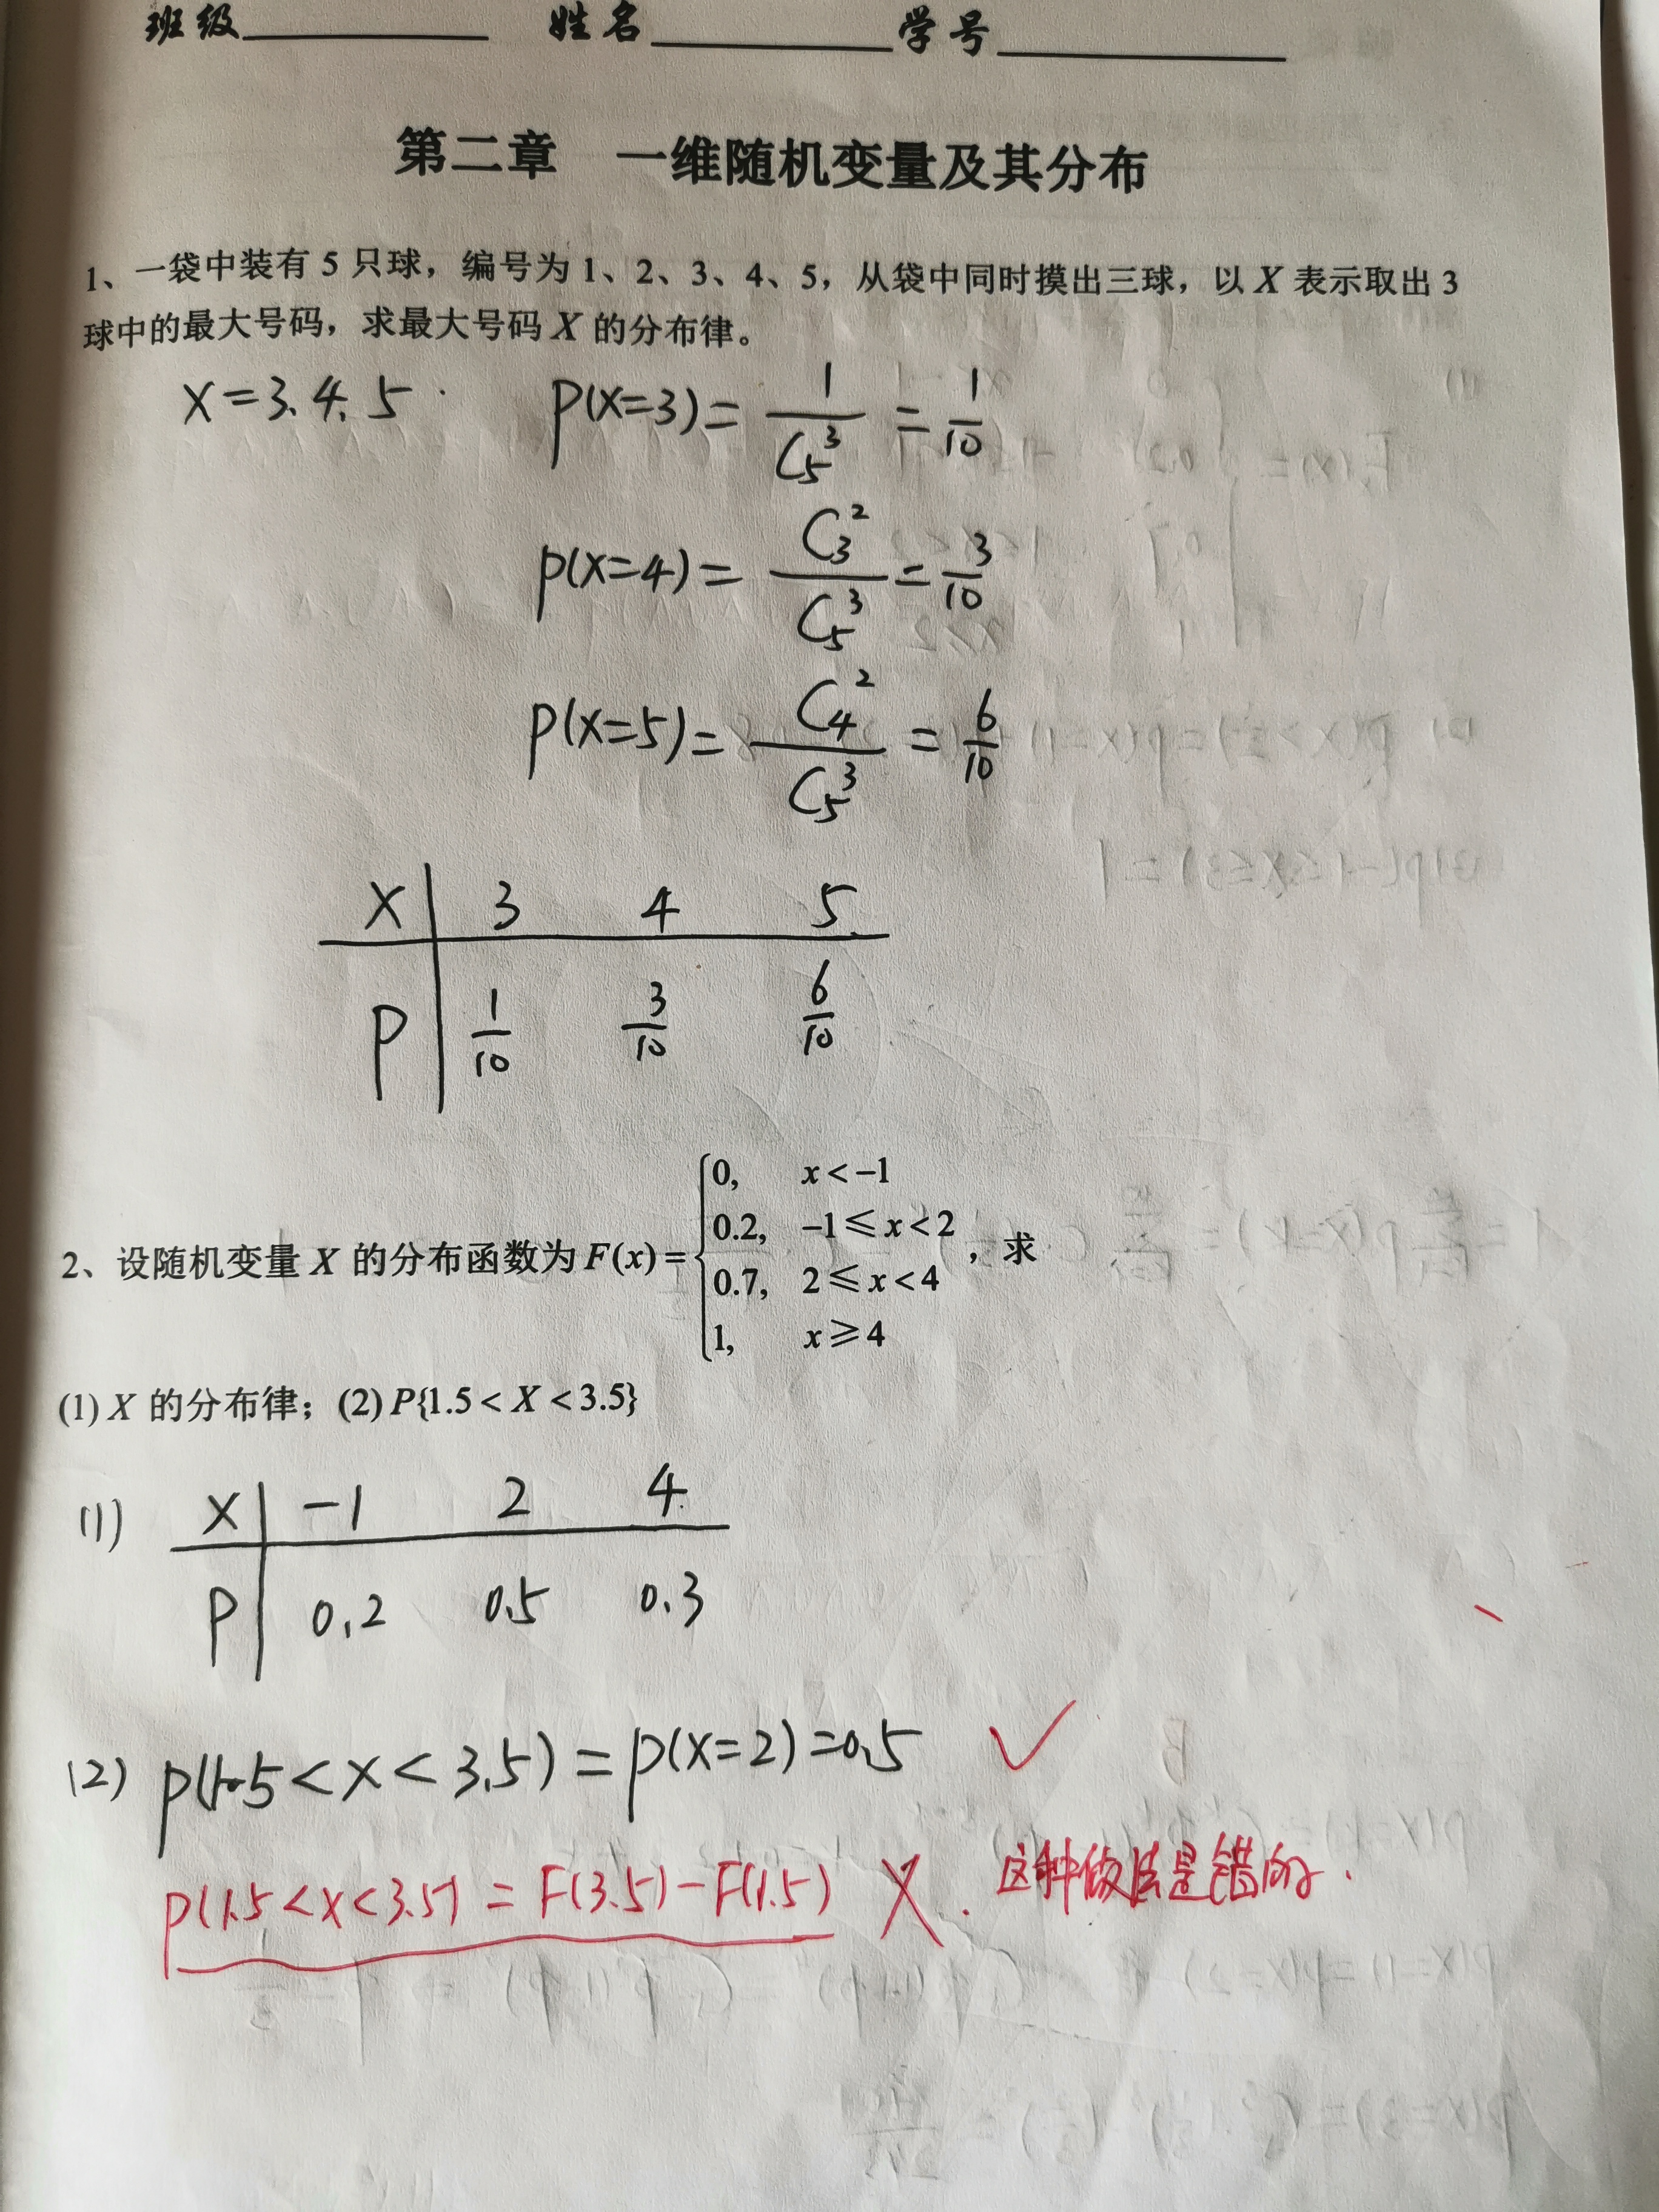 班级 姓名 学号
第二章 一维随机变量及其分布
1、一袋中装有 5 只球，编号为 1、2、3、4、5，从袋中同时摸出三球，以 X 表示取出 3
球中的最大号码，求最大号码 X 的分布律。
X=3.4.5. P(X=3)=1/C₅³=1/10
P(X=4)=C₃²/C₅³=3/10
P(X=5)=C₄²/C₅³=6/10
X 3 4 5
P 1/10 3/10 6/10
0, x<−1
0.2, −1≤x<2
2、设随机变量 X 的分布函数为 F(x)= ，求
0.7, 2≤x<4
1, x≥4
(1) X 的分布律；(2) P{1.5<X<3.5}
(1) X −1 2 4
P 0.2 0.5 0.3
(2) P(1.5<X<3.5)=P(X=2)=0.5 ✓
P(1.5<X<3.5)=F(3.5)−F(1.5) ✗. 这种做法是错的.